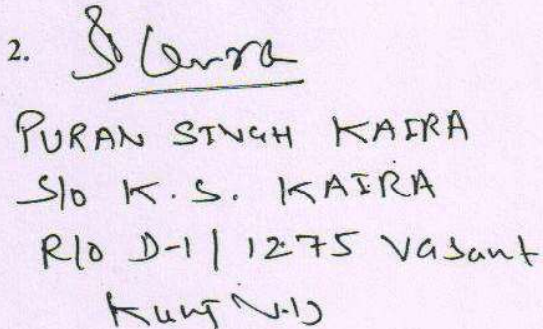 2.
PURAN SINGH KAIRA
S/o K.S. KAIRA
R/o D-1/1275 Vasant
Kunj N.D